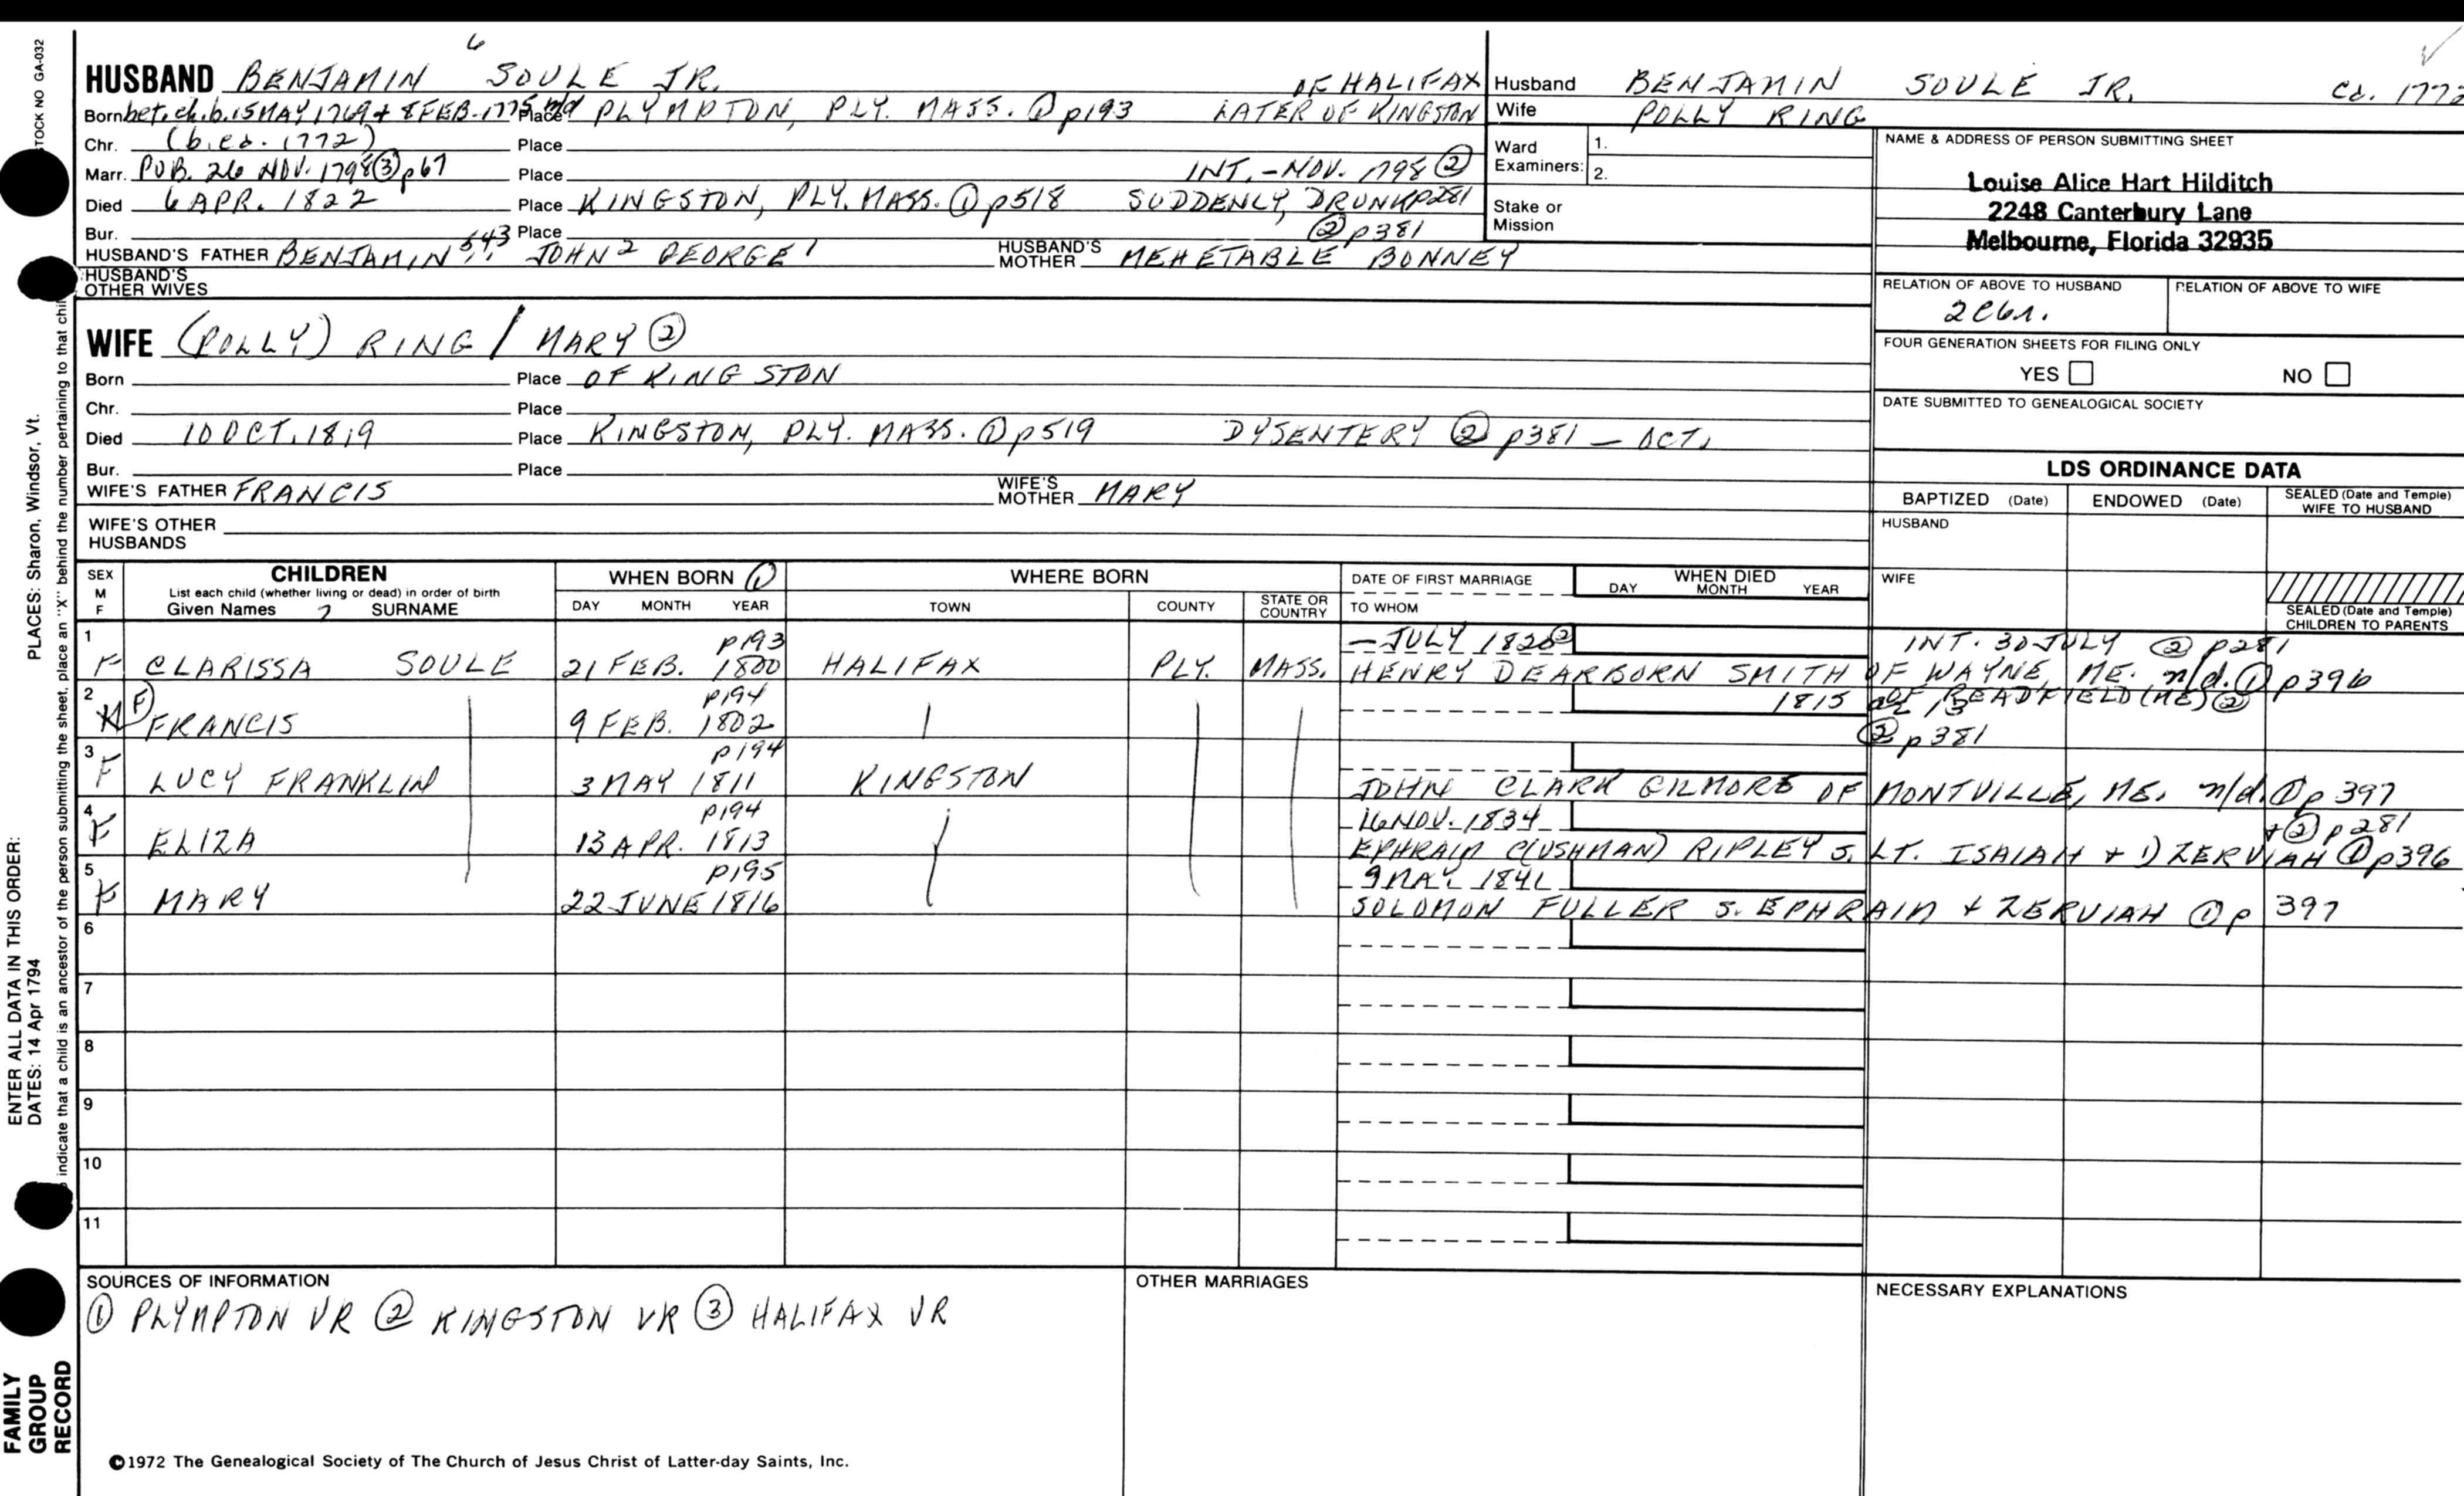 STOCK NO GA-032
6
HUSBAND BENJAMIN SOULE JR. OF HALIFAX
Born bet. ch. b. 15 MAY 1769 + 8 FEB. 1775 n/d Place PLYMPTON, PLY. MASS. ① p193 LATER OF KINGSTON
Chr. (b. ca. 1772) Place
Marr. PUB. 26 NOV. 1798 ③ p67 Place INT. - NOV. 1798 ②
Died 6 APR. 1822 Place KINGSTON, PLY. MASS. ① p518 SUDDENLY, DRUNK p281
Bur. Place ② p381
HUSBAND'S FATHER BENJAMIN 5 4 3 JOHN 2 GEORGE 1 HUSBAND'S MOTHER MEHETABLE BONNEY
HUSBAND'S OTHER WIVES
Husband BENJAMIN SOULE JR. ca. 1772
Wife POLLY RING
Ward Examiners: 1.
2.
Stake or Mission
NAME & ADDRESS OF PERSON SUBMITTING SHEET
Louise Alice Hart Hilditch
2248 Canterbury Lane
Melbourne, Florida 32935
RELATION OF ABOVE TO HUSBAND RELATION OF ABOVE TO WIFE
FOUR GENERATION SHEETS FOR FILING ONLY
YES NO
DATE SUBMITTED TO GENEALOGICAL SOCIETY
WIFE (POLLY) RING / MARY ②
Born Place OF KINGSTON
Chr. Place
Died 10 OCT. 1819 Place KINGSTON, PLY. MASS. ① p519 DYSENTERY ② p381 - OCT.
Bur. Place
WIFE'S FATHER FRANCIS WIFE'S MOTHER MARY
WIFE'S OTHER HUSBANDS
LDS ORDINANCE DATA
BAPTIZED (Date) ENDOWED (Date) SEALED (Date and Temple) WIFE TO HUSBAND
HUSBAND
WIFE
SEALED (Date and Temple) CHILDREN TO PARENTS
SEX M F CHILDREN WHEN BORN ① WHERE BORN DATE OF FIRST MARRIAGE WHEN DIED
List each child (whether living or dead) in order of birth
Given Names 7 SURNAME DAY MONTH YEAR TOWN COUNTY STATE OR COUNTRY TO WHOM DAY MONTH YEAR
1 p193 - JULY 1820 ② INT. 30 JULY ② p281
F CLARISSA SOULE 21 FEB. 1800 HALIFAX PLY. MASS. HENRY DEARBORN SMITH OF WAYNE, ME. n/d. ① p396
2 p194 1815 ae 13 OF READFIELD (ME) ②
M (F) FRANCIS 9 FEB. 1802 ② p381
3 p194
F LUCY FRANKLIN 3 MAY 1811 KINGSTON JOHN CLARK GILMORE OF MONTVILLE, ME. n/d. ① p 397
4 p194 16 NOV. 1834 + ② p281
F ELIZA 13 APR. 1813 EPHRAIM C(USHMAN) RIPLEY S. LT. ISAIAH + 1) ZERVIAH ① p396
5 p195 9 MAY 1841
F MARY 22 JUNE 1816 SOLOMON FULLER S. EPHRAIM + ZERVIAH ① p 397
6
7
8
9
10
11
SOURCES OF INFORMATION
① PLYMPTON VR ② KINGSTON VR ③ HALIFAX VR
OTHER MARRIAGES
NECESSARY EXPLANATIONS
©1972 The Genealogical Society of The Church of Jesus Christ of Latter-day Saints, Inc.
PLACES: Sharon, Windsor, Vt.
ENTER ALL DATA IN THIS ORDER:
DATES: 14 Apr 1794
indicate that a child is an ancestor of the person submitting the sheet, place an "X" behind the number pertaining to that
FAMILY GROUP RECORD